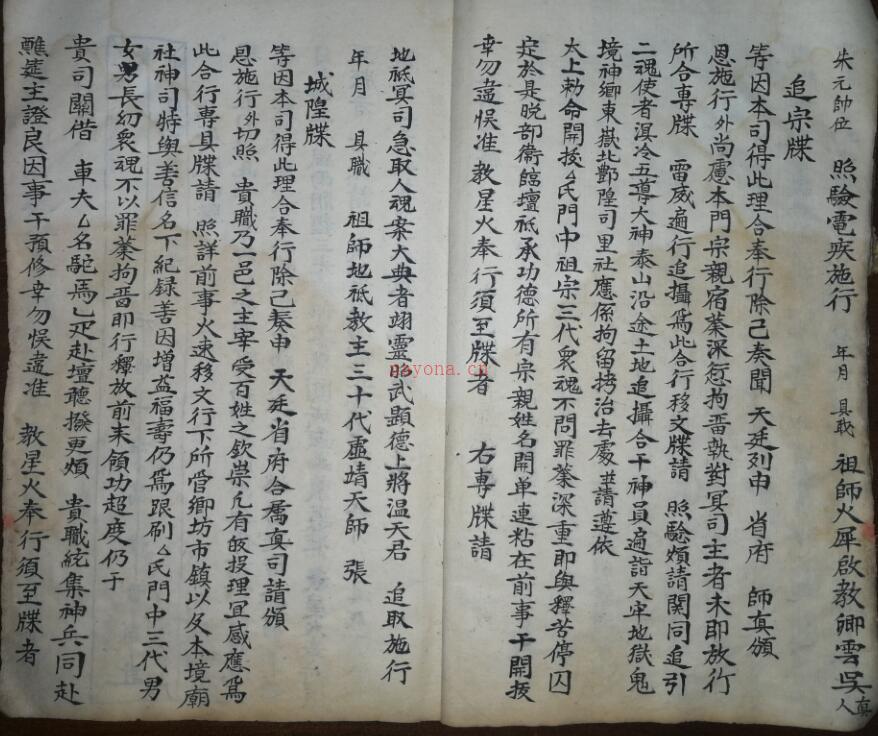 朱元帥位　照驗電疾施行　年月　具職　祖師火犀啟教卿雲吳真人
追宗牒
等因本司得此理合奉行除已奏聞　天廷列申　省府　師真頒
恩施行外尚慮本門宗親宿業深愆拘畱執對冥司主者未即放行
所合專牒　雷威遍行追攝為此合行移文牒請　照驗煩請関同追引
二魂使者溟泠五道大神泰山沿途土地追攝合干神員遍詣天牢地獄鬼
境神鄉東嶽北酆隍司里社應係拘留拷治去處並請遵依
太上勅命開拔厶氏門中祖宗三代眾魂不問罪業深重即與釋苦停囚
定於是晚部衛臨壇祗承功德所有宗親姓名開单連粘在前事干開拔
幸勿違悮准　教星火奉行須至牒者　右專牒請
地祇冥司急取人視案大典者翊靈昭武顯德上將溫天君　追取施行
年月　具職　祖師地祇教主三十代虛靖天師　張
城隍牒
等因本司得此理合奉行除已奏申　天廷省府合屬真司請頒
恩施行外切照　貴職乃一邑之主宰受百姓之欽崇凢有皈投理宜感應為
此合行專具牒請　照詳前事火速移文行下所管鄉坊市鎮以及本境廟
社神司特與善信名下紀録善因增益福壽仍為跟刷厶氏門中三代男
女男長幼眾魂不以罪業拘畱即行釋放前來領功超度仍于
貴司關借　車夫厶名駝馬乙疋赴壇聽撥更煩　貴職統集神兵同赴
醮筵主證良因事干預修幸勿悮違准　教星火奉行須至牒者
nayona.cn